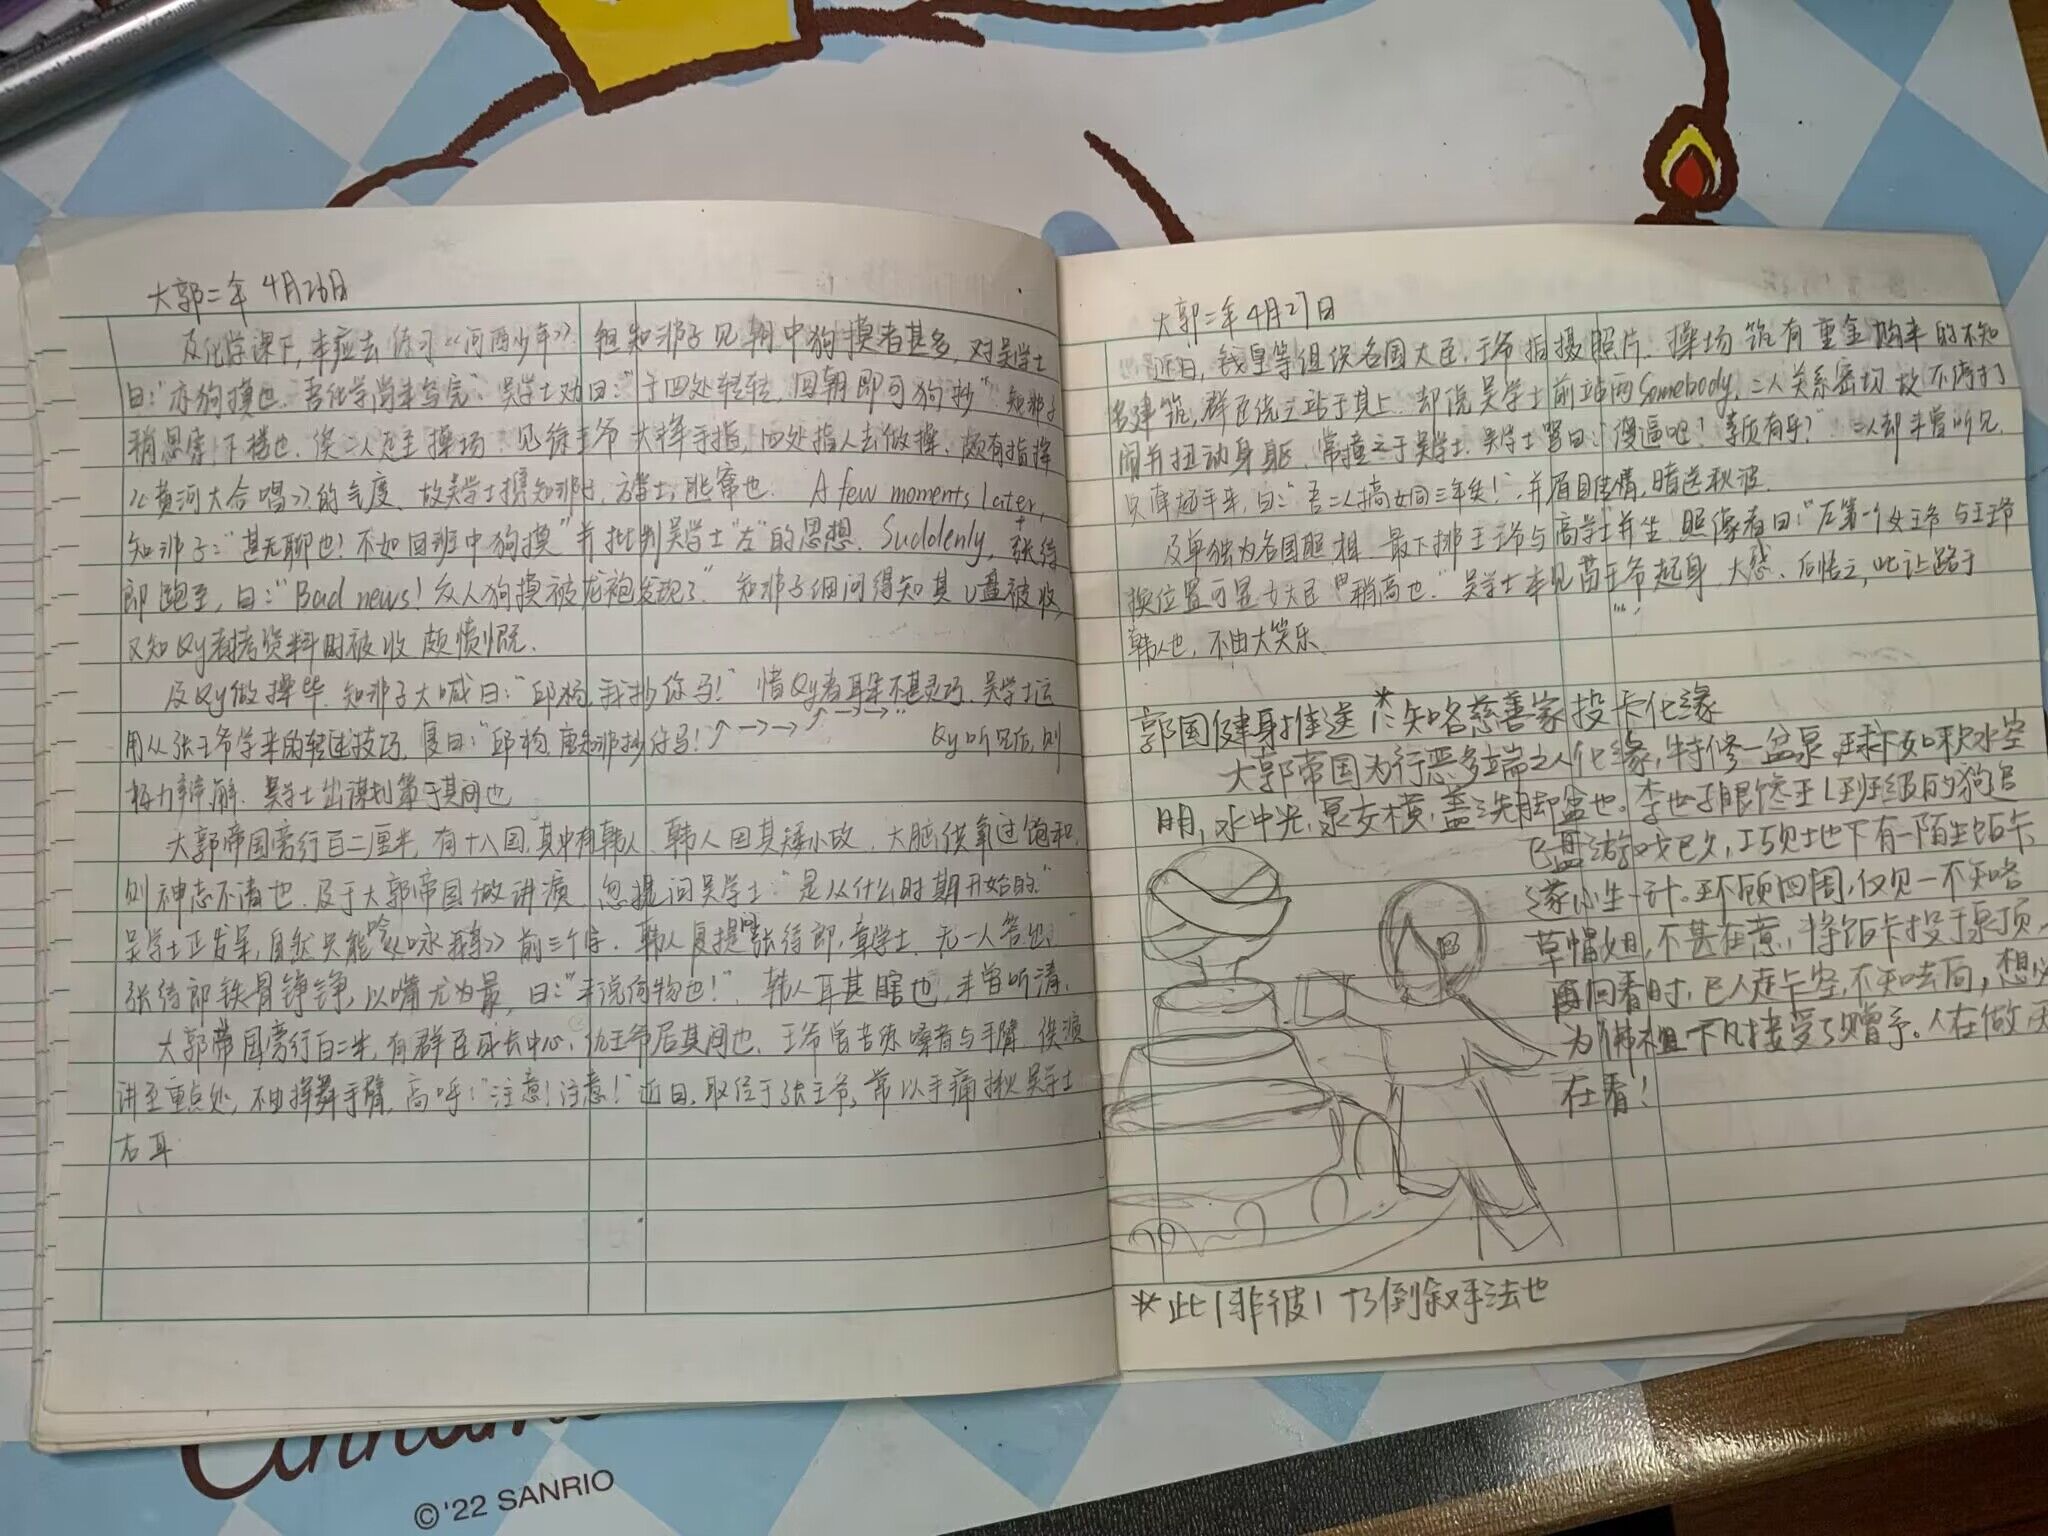 大郭二年 4月26日
及化学课下,本应去练习《河西少年》。但知非子见朝中狗摸者甚多,对吴学士
曰:"亦狗摸也,吾化学尚未写完"。吴学士劝曰:"于四处转转,回朝即可狗抄"。知非子
稍思索,下楼也。俟二人走至操场,见徐王爷大挥手指,四处指人去做操,颇有指挥
《黄河大合唱》的气度。故吴学士携知非子, 也。A few moments later,
知非子:"甚无聊也!不如回班中狗摸"并批判吴学士"左"的思想。Suddenly,张待
郎跑至,曰:"Bad news!众人狗摸被龙袍发现了"知非子细问得知其U盘被收,
又知Qy者考资料时被收 颇愤慨.
及Qy做操毕,知非子大喊曰:"邱杨,我抄你马!"惜Qy者耳朵不甚灵巧,吴学士运
用从张王爷学来的转述技巧,复曰:"邱杨,唐知非抄你马!↗→→↗→→" Qy听见后,则
极力辩解,吴学士出谋划策于其间也
大郭帝国旁行百二厘米,有十八国,其中有韩人,韩人因其矮小故,大脑供氧过饱和,
则神志不清也。及于大郭帝国做讲演,忽提问吴学士:"是从什么时期开始的"
吴学士正发呆,自然只能吟《咏鹅》前三个字。韩人复提问张待郎,章学士,无一人答也。
张待郎铁骨铮铮,以嘴尤为最,曰:"未说何物也!",韩人耳甚瞎也,未曾听清,
大郭帝国旁行百二米,有群臣成长中心,仇王爷居其间也。王爷曾苦练嗓音与手臂,俟演
讲至重点处,不由挥舞手臂,高呼:"注意!注意!"近日,取位于张王爷,常以手痛揪吴学士
右耳.
大郭二年4月27日
近日,钱皇等组织各国大臣,王爷拍摄照片,操场筑有重金购来的不知
名建筑,群臣优之站于其上。却说吴学士前站两Somebody,二人关系密切,故不停打
闹并扭动身躯,常撞之于吴学士。吴学士骂曰:"傻逼吧!素质有乎?"二人却未曾听见,
只直起手来,曰:"吾二人搞如同三年矣!",并眉目传情,暗送秋波.
及单独为各国照相,最下排王王爷与高学士并坐,照像者曰:"左第一个女王爷与王王爷
换位置可显女大臣稍高也",吴学士本见苗王爷起身,大惑,后悟之,此让路于
韩人也,不由大笑乐.
郭国健身推送*:知名慈善家投卡化缘
大郭帝国为行恶多端之人化缘,特修一盆泉,球下如积水空
明,水中 ,泉交横,盖洗脚盆也。李世子眼馋王L班级的狗追
已 游戏已久,巧见土地下有一陌生饭卡
遂心生一计。环顾四周,仅见一不知名
草帽姐,不甚在意,将饭卡投于泉顶,
再回看时,已人走卡空,不知去向,想必
为佛祖下凡接受了赠予。人在做天
在看!
*此1非彼1 乃倒叙手法也
Cinna
©'22 SANRIO